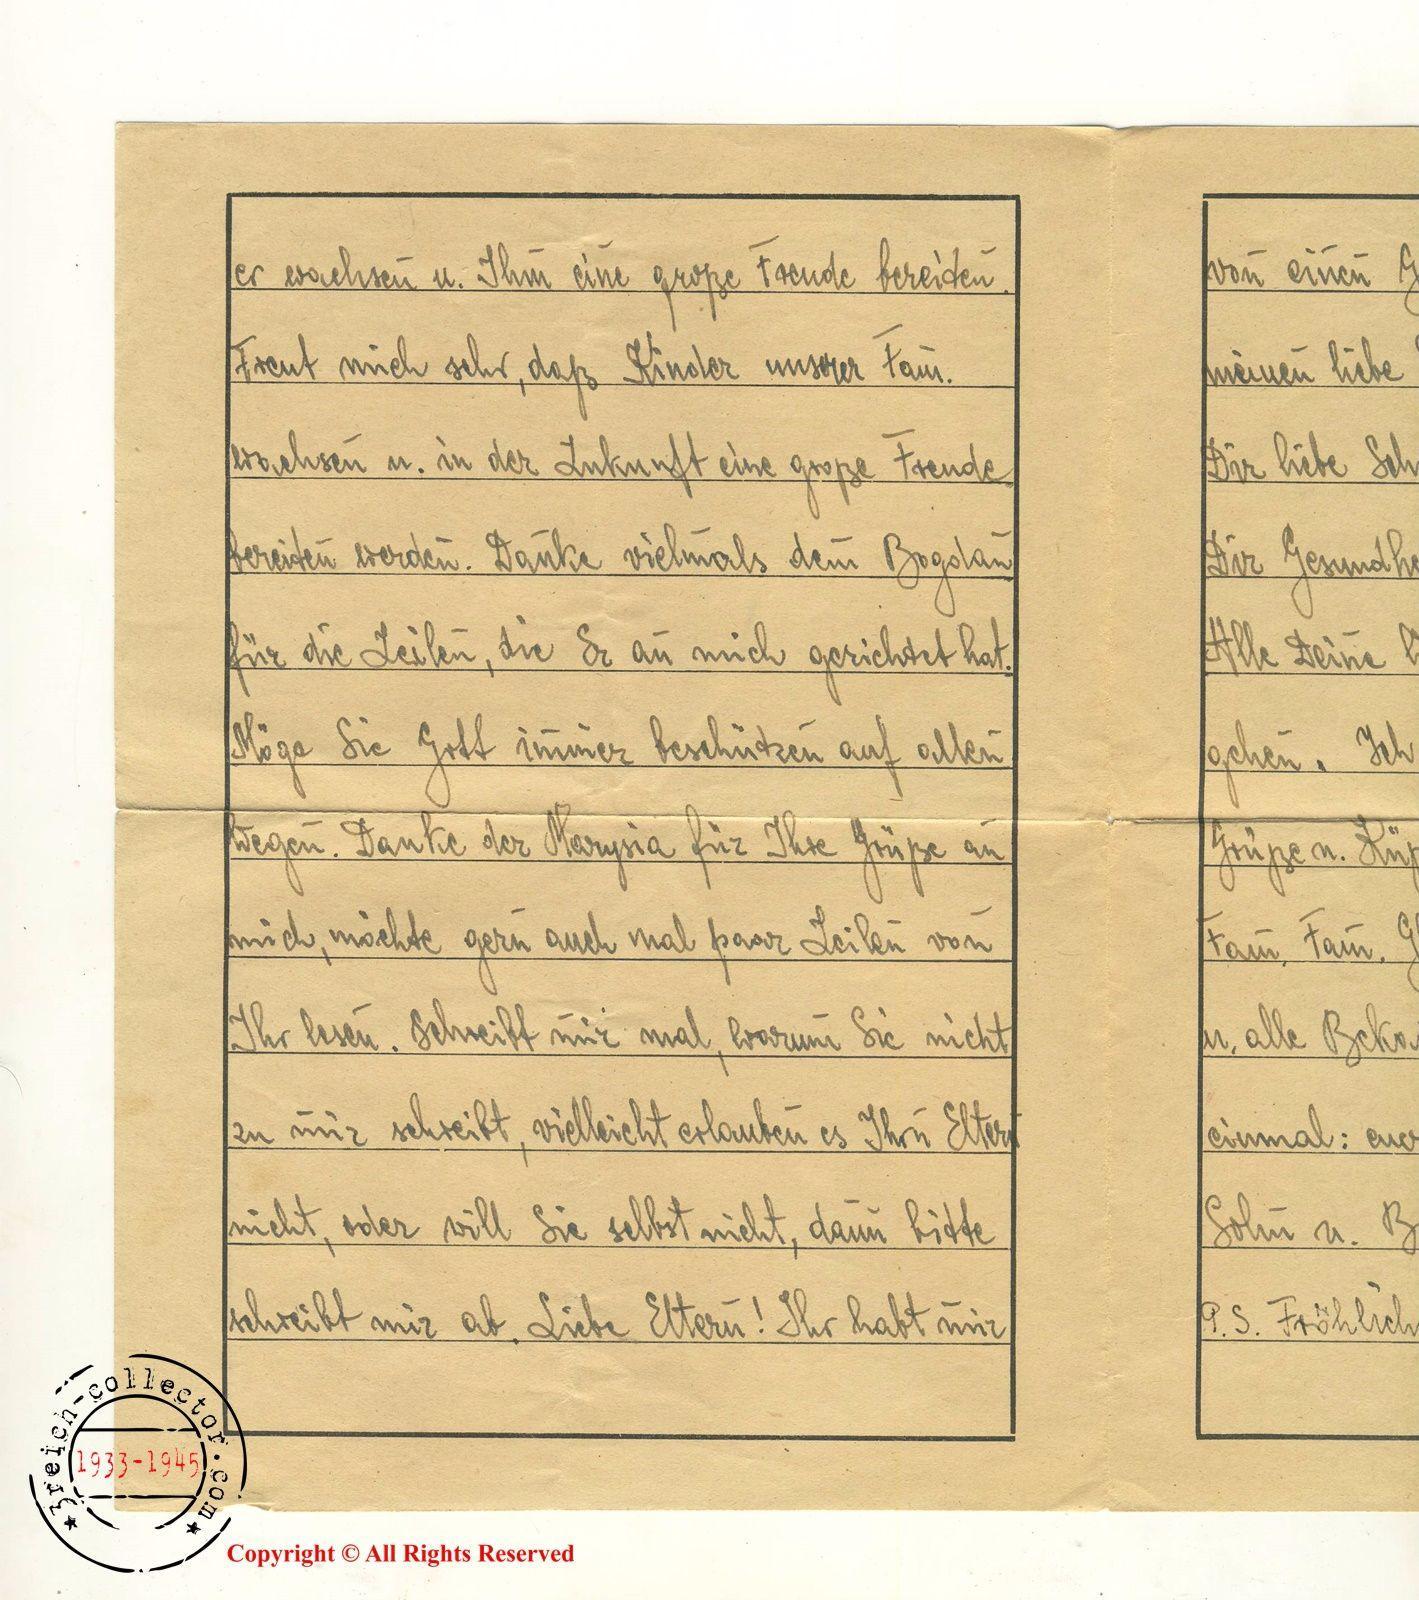 er wachsen u. Ihm eine große Freude bereiten.
Freut mich sehr, daß Kinder unserer Fam.
wachsen u. in der Zukunft eine große Freude
bereiten werden. Danke vielmals dem Bogdan
für die Zeilen, die Er an mich gerichtet hat.
Möge Sie Gott immer beschützen auf allen
Wegen. Danke der Marysia für Ihre Grüße an
mich, möchte gern auch mal paar Zeilen von
Ihr lesen. Schreibt mir mal, warum Sie nicht
zu mir schreibt, vielleicht erlauben es Ihrn Eltern
nicht, oder will Sie selbst nicht, dann bitte
schreibt mir ab. Liebe Eltern! Ihr habt mir
von einen G
meinen liebe
Dir liebe Sch
Dir Gesundhe
Alle Deine
gehen. Ich
Grüße u. Küß
Fam. Fam. Gl
u. alle Beka
einmal: eue
Sohn u. B
P.S. Fröhlich
*3reich-collector.com*
1933-1945
Copyright © All Rights Reserved